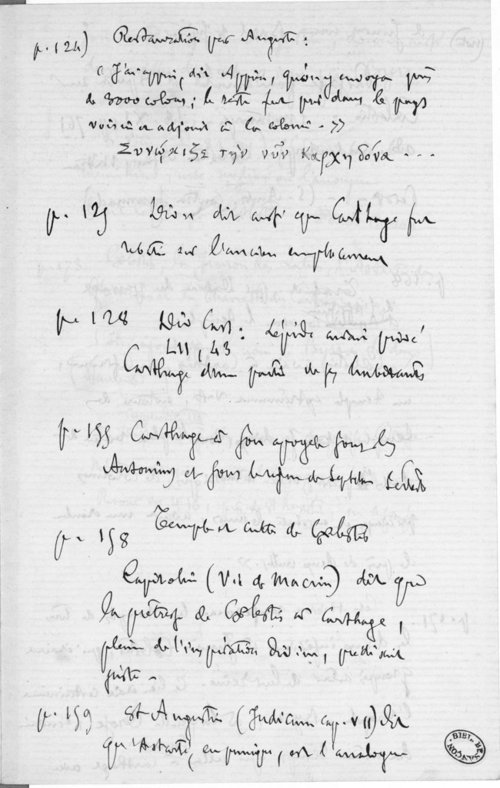 p. 124) Restauration par Auguste :
« J'ai appris, dit Appien, qu'on y envoya près
de 3000 colons ; le reste fut pris dans le pays
voisin et adjoint à la colonie. »
Συνῴκιζε τὴν νῦν Καρχηδόνα ...
p. 125 Dion dit aussi que Carthage fut
rebâtie sur l'ancien emplacement
p. 128 Dio Cass : Lépide avait privé
LII, 43
Carthage d'une partie de ses habitants
p. 155 Carthage à son apogée sous les
Antonins et sous le règne de Septime Sévère
p. 158 Temple et culte de Cœlestis
Capitolin (Vit de Macrin) dit que
la prêtresse de Cœlestis à Carthage,
pleine de l'inspiration divine, prédisait
juste.
p. 159 St Augustin (Judicum cap. VII) dit
qu'Astarté, en punique, est l'analogue
BIBL. BESANÇON